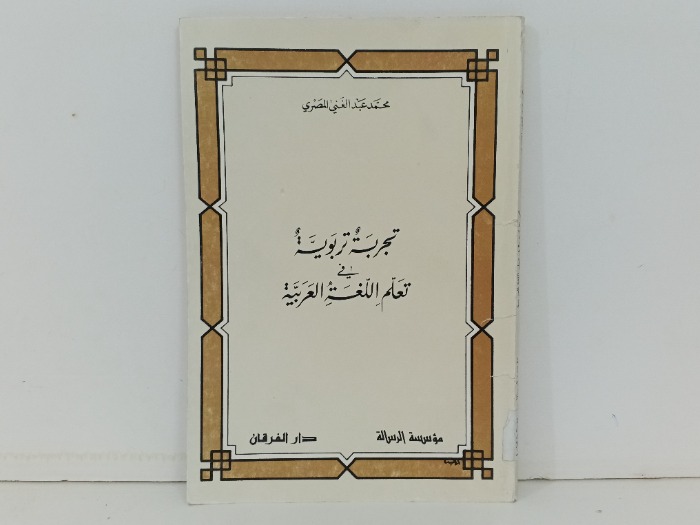 محمد عبد الغني المصري
تجربةٌ تربويَّةٌ
في
تعلّمِ اللّغةِ العَربيَّة
مؤسسة الرسالة دار الفرقان